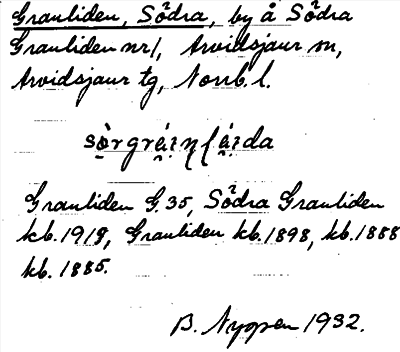 Granliden, Södra, by å Södra
Granliden nr 1, Arvidsjaur sn,
Arvidsjaur tg, Norrb. l.
Granliden G. 35, Södra Granliden
kb. 1919, Granliden kb. 1898, kb. 1888
kb. 1885.
B. Nygren 1932.